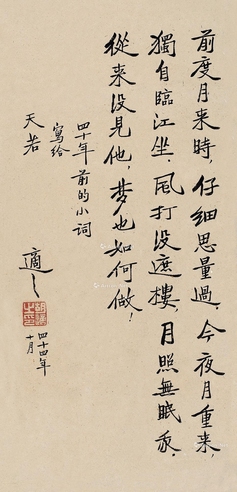 前度月来時，仔細思量過。今夜月重来，
獨自臨江坐。風打没遮樓，月照無眠我。
從来没見他，梦也如何做！
四十年前的小词
寫給
天若
適之
胡適之印
四十四年
十月